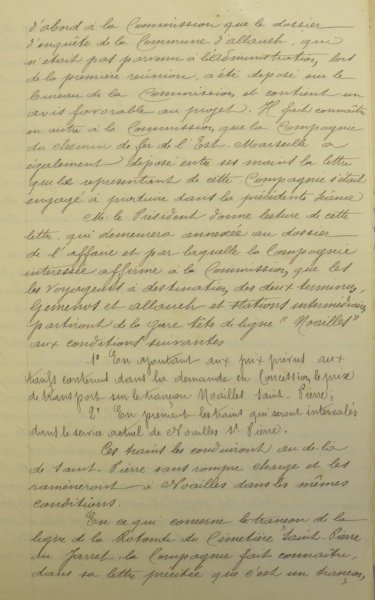 d'abord à la Commission que le dossier
d'enquête de la Commune d'allauch, qui
n'était pas parvenu à l'administration, lors
de la première réunion, a été déposé sur le
bureau de la Commission, et contient un
avis favorable au projet. Il fait connaître
en outre à la Commission, que la Compagnie
du chemin de fer de l'Est-Marseille a
également déposé entre ses mains la lettre
que le représentant de cette Compagnie s'était
engagé à produire dans la précédente séance
M. le Président donne lecture de cette
lettre, qui demeurera annexée au dossier
de l'affaire et par laquelle la Compagnie
intéressée affirme à la Commission, que les
les voyageurs à destination, des deux terminus,
Gémenos et allauch et stations intermédiaires
partiront de la gare tête de ligne "Noailles"
aux conditions suivantes
1° En ajoutant aux prix prévus aux
tarifs contenus dans la demande en Concession, le prix
de transport sur le tronçon Noailles Saint-Pierre;
2° En prenant les trains qui seront intercalés
dans le service actuel de Noailles St Pierre.
Ces trains les conduiront au delà
de Saint-Pierre sans rompre charge et les
ramèneront à Noailles dans les mêmes
conditions.
En ce qui concerne le tronçon de la
ligne de la Rotonde du Cimetière Saint-Pierre
au Jarret la Compagnie fait connaître,
dans sa lettre précitée que c'est un tronçon,